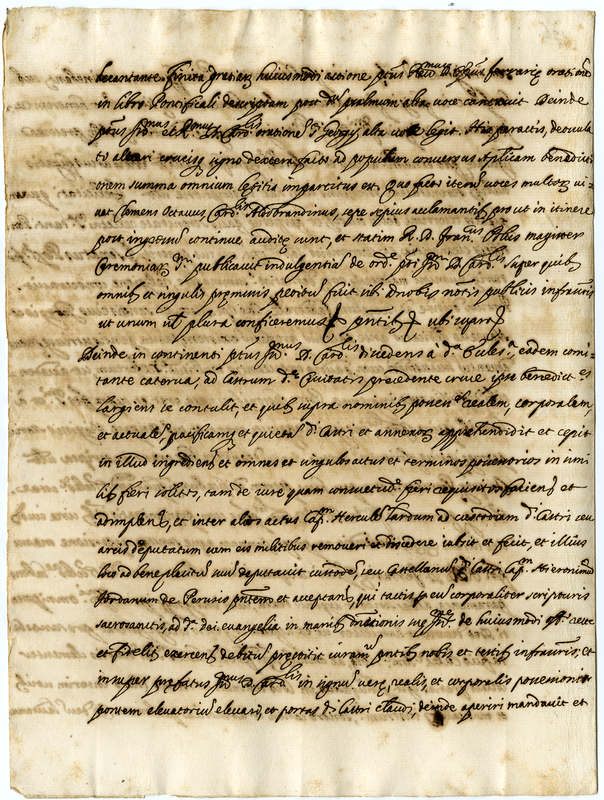 decantante. finita gratiarum huiusmodi actione ptus Illmus D. Epus ferrariæ orationem
in libro Pontificali descriptam post psalmum alta voce cantavit Deinde
ptus Illmus et Rmus D. Cardlis orationem Sti Georgij alta voce legit. His peractis, deoscula
to altari crucisq signo dextera facto ad populum conversus Aplicam benedicti
onem summa omnium letitia impartitus est, Quo facto iterum voces multorum vi=
vat Clemens Octavus, Cardlis Aldobrandinus, sepe sepius acclamantium prout in itinere
post ingressum continue auditæ sunt, et statim R. D. Franus magister
Ceremoniarum publicavit indulgentias de orde pti Illmi D. Cardlis super quibus
omnibus et singulis præmissis petitum fuit ubi a nobis notariis publicis infrascriptis
ut unum vel plura conficeremus pntibus ubi supra
Deinde in continenti ptus Illmus D. Cardlis discedens a da Ecclesia, eadem comi=
tante caterva, ad Castrum de Civitatis precedente cruce ipse benedictes
largiens se contulit, et quibus supra nominibus possessionem realem, corporalem,
et actualem, pacificamq et quietam di Castri et annexorum apprehendidit et cepit
in illud ingrediens et omnes et singulos actus et terminos possessorios in simi
libus fieri solitos, tam de iure quam consuetudine fieri requisitos faciens et
adimplens, et inter alios actus Capm Herculem Tardum ad custodiam di Castri seu
arcis deputatum cum eis militibus removeri et discedere iussit et fecit, et illius
loco ad beneplacitum suum deputavit custodem, seu Castellanum di Castri Capm Hieronimum
Jordanum de Perusio pntem et acceptantem, qui tactis per eum corporaliter scripturis
sacrosanctis, ad sta dei evangelia in manibus de huiusmodi offo recte
et fideliter exercendo debitum prestitit iuramentum pntibus nobis et testibus infrascriptis, et
insuper præfatus Illmus D. Cardlis in signum veræ, realis, et corporalis possessionis
pontem elevatorium elevari, et portas di Castri claudi, deinde aperiri mandavit et